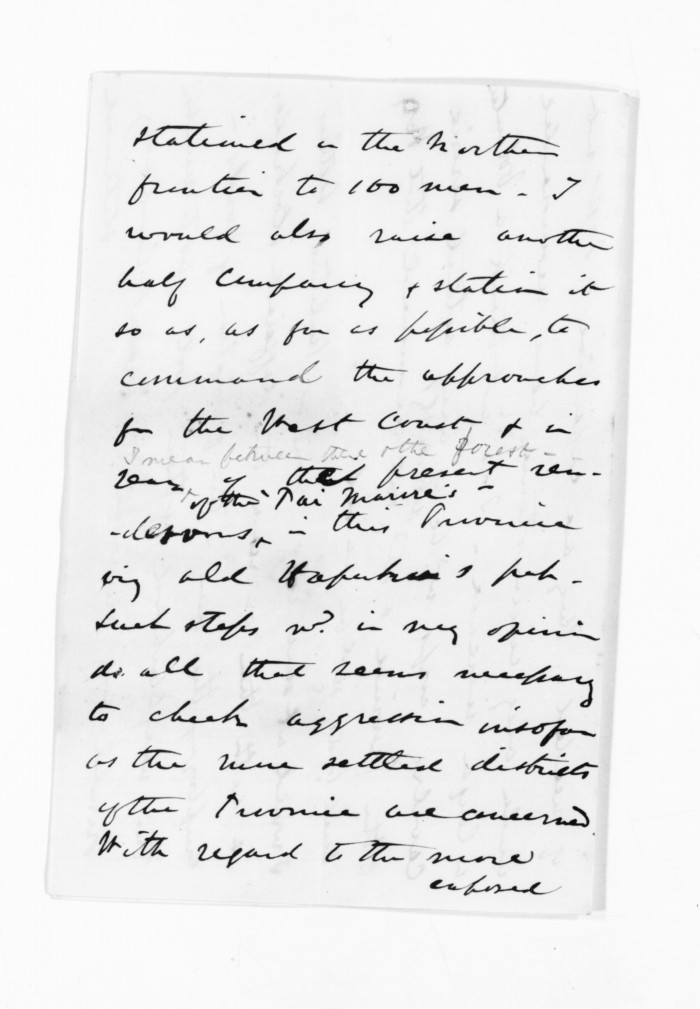 stationed on the Northern
frontier to 100 men - I
would also raise another
half Company & station it
so as, as far as possible, to
command the approaches
for the West Coast, & in
I mean between there & the forest -
rear of the present ren-
& of the Pai Marire's -
-dezvous, in this Province
viz old Hapuku's pah -
such steps wd. in my opinion
do all that seems necessary
to check aggression insofar
as the more settled districts
of the Province are concerned.
With regard to the more
exposed